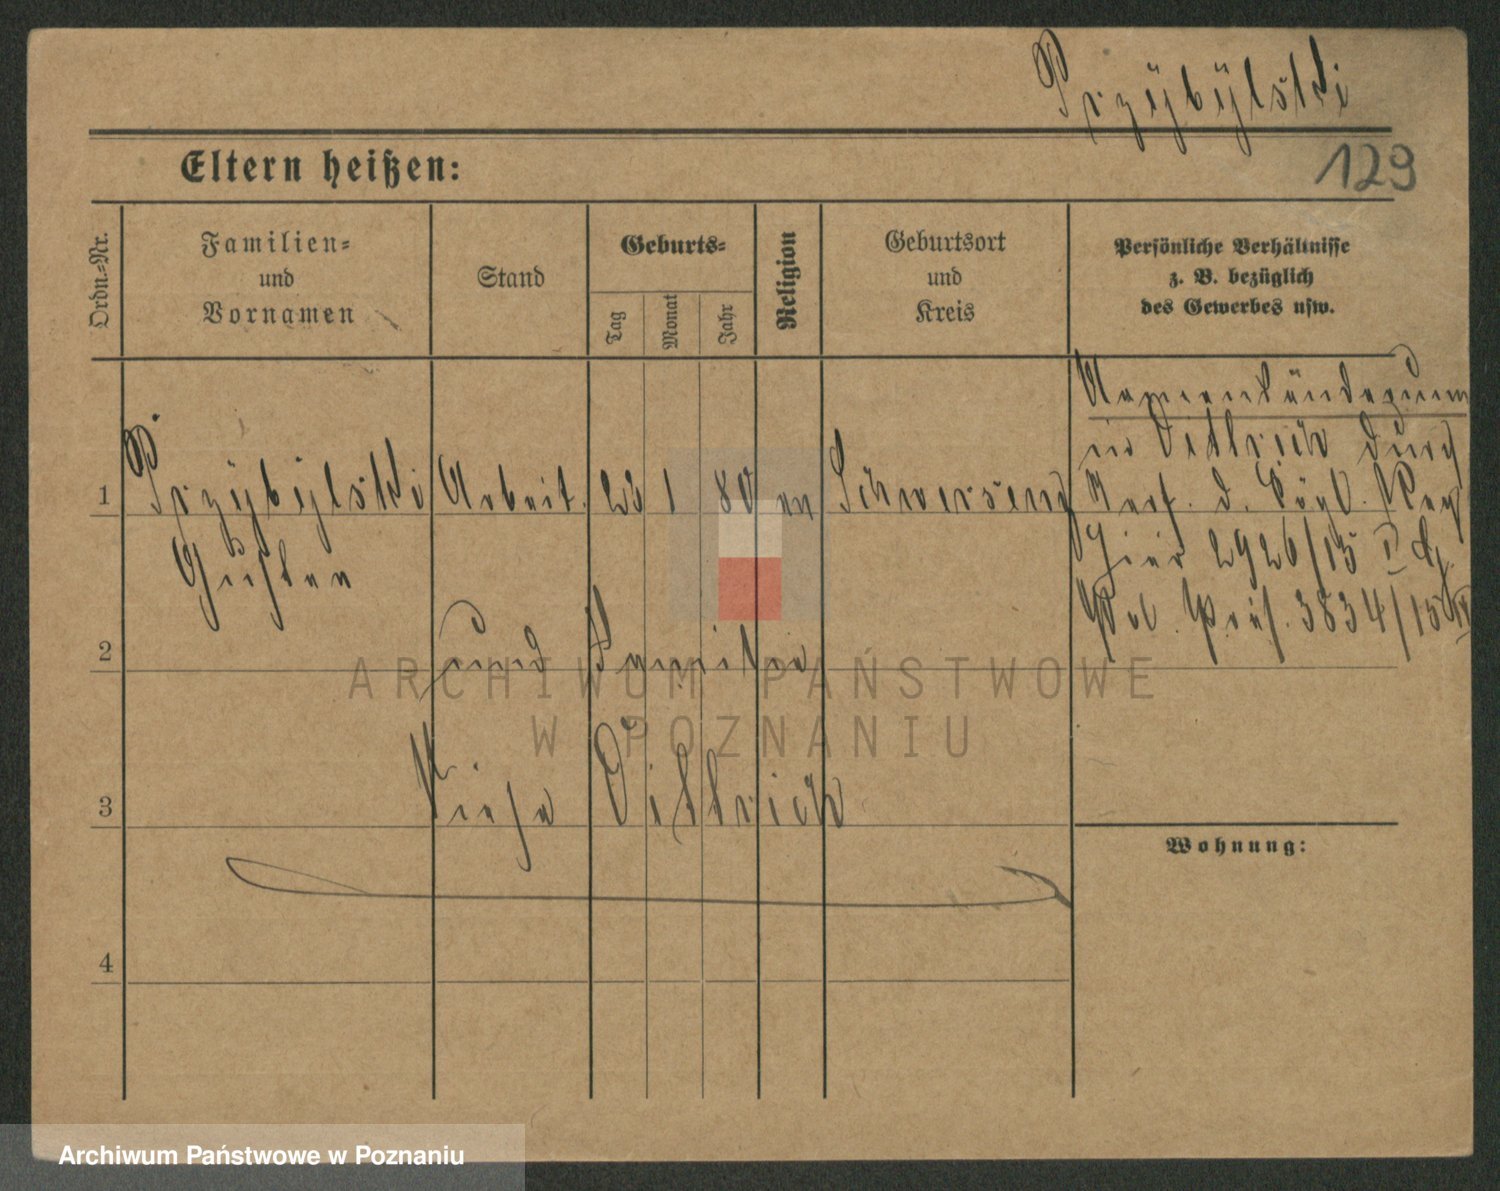 Przÿbÿlski
129
Eltern heißen:
Ordn.-Nr.
Familien-
und
Vornamen
Stand
Geburts-
Tag
Monat
Jahr
Religion
Geburtsort
und
Kreis
Persönliche Verhältnisse
z. B. bezüglich
des Gewerbes usw.
1
Przÿbÿlski
Gustav
Arbeit.
1 80
Schwersenz
Namensänderung
in Dittrich durch
Verf. d. Kgl. Reg.
hier 2926/15 I
Pol. Präs. 3834/15
2
und Familie
3
siehe Dittrich
4
Wohnung:
ARCHIWUM PAŃSTWOWE
W POZNANIU
Archiwum Państwowe w Poznaniu